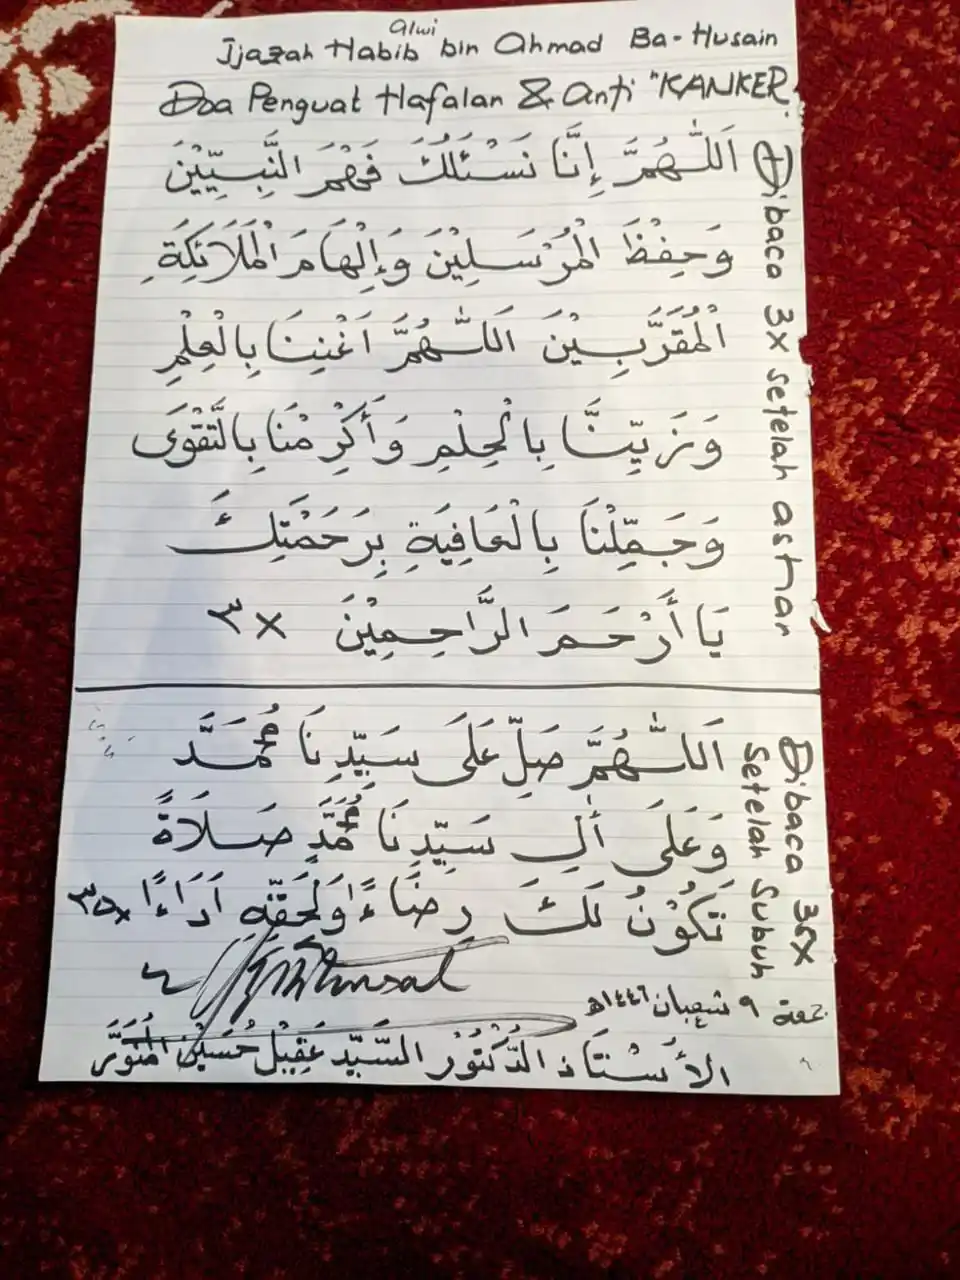 Ijazah Habib Alwi bin Ahmad Ba-Husain
Doa Penguat Hafalan & Anti "KANKER"
اَللّٰهُمَّ إِنَّا نَسْئَلُكَ فَهْمَ النَّبِيِّيْنَ
وَحِفْظَ الْمُرْسَلِيْنَ وَإِلْهَامَ الْمَلَائِكَةِ
الْمُقَرَّبِيْنَ اَللّٰهُمَّ اَغْنِنَا بِالْعِلْمِ
وَزَيِّنَّا بِالْحِلْمِ وَأَكْرِمْنَا بِالتَّقْوَى
وَجَمِّلْنَا بِالْعَافِيَةِ بِرَحْمَتِكَ
يَا أَرْحَمَ الرَّاحِمِيْنَ ٣×
Dibaca 3x setelah ashar
اَللّٰهُمَّ صَلِّ عَلَى سَيِّدِنَا مُحَمَّدٍ
وَعَلَى أٰلِ سَيِّدِنَا مُحَمَّدٍ صَلَاةً
تَكُوْنُ لَكَ رِضَاءً وَلِحَقِّهِ اَدَاءً ٣٥×
Dibaca 35x
setelah Subuh
جمعة ٩ شعبان ١٤٤٦ه
الأُسْتَاذ الدُّكْتُوْر السَّيِّد عَقِيْل حُسَيْن الْمُنَوَّر